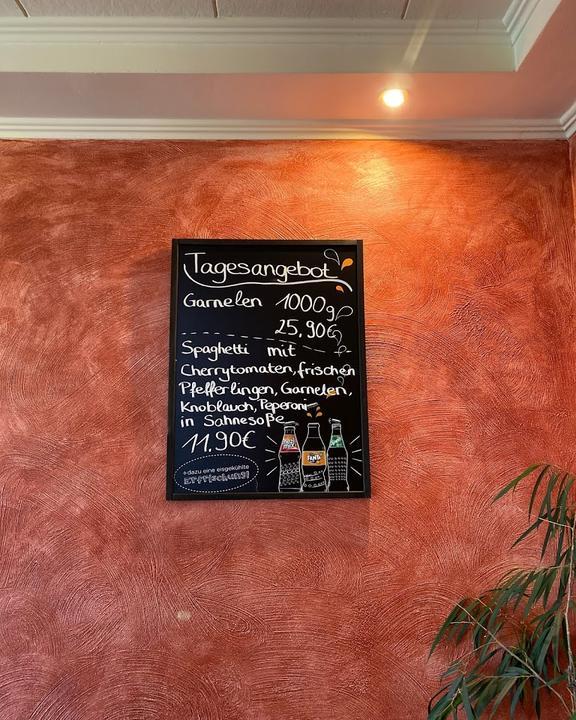 Tagesangebot
Garnelen 1000g
25,90€
Spaghetti mit
Cherrytomaten, frischen
Pfefferlingen, Garnelen,
Knoblauch, Peperoni
in Sahnesoße
11,90€
+dazu eine eisgekühlte
Erfrischung!
FANTA